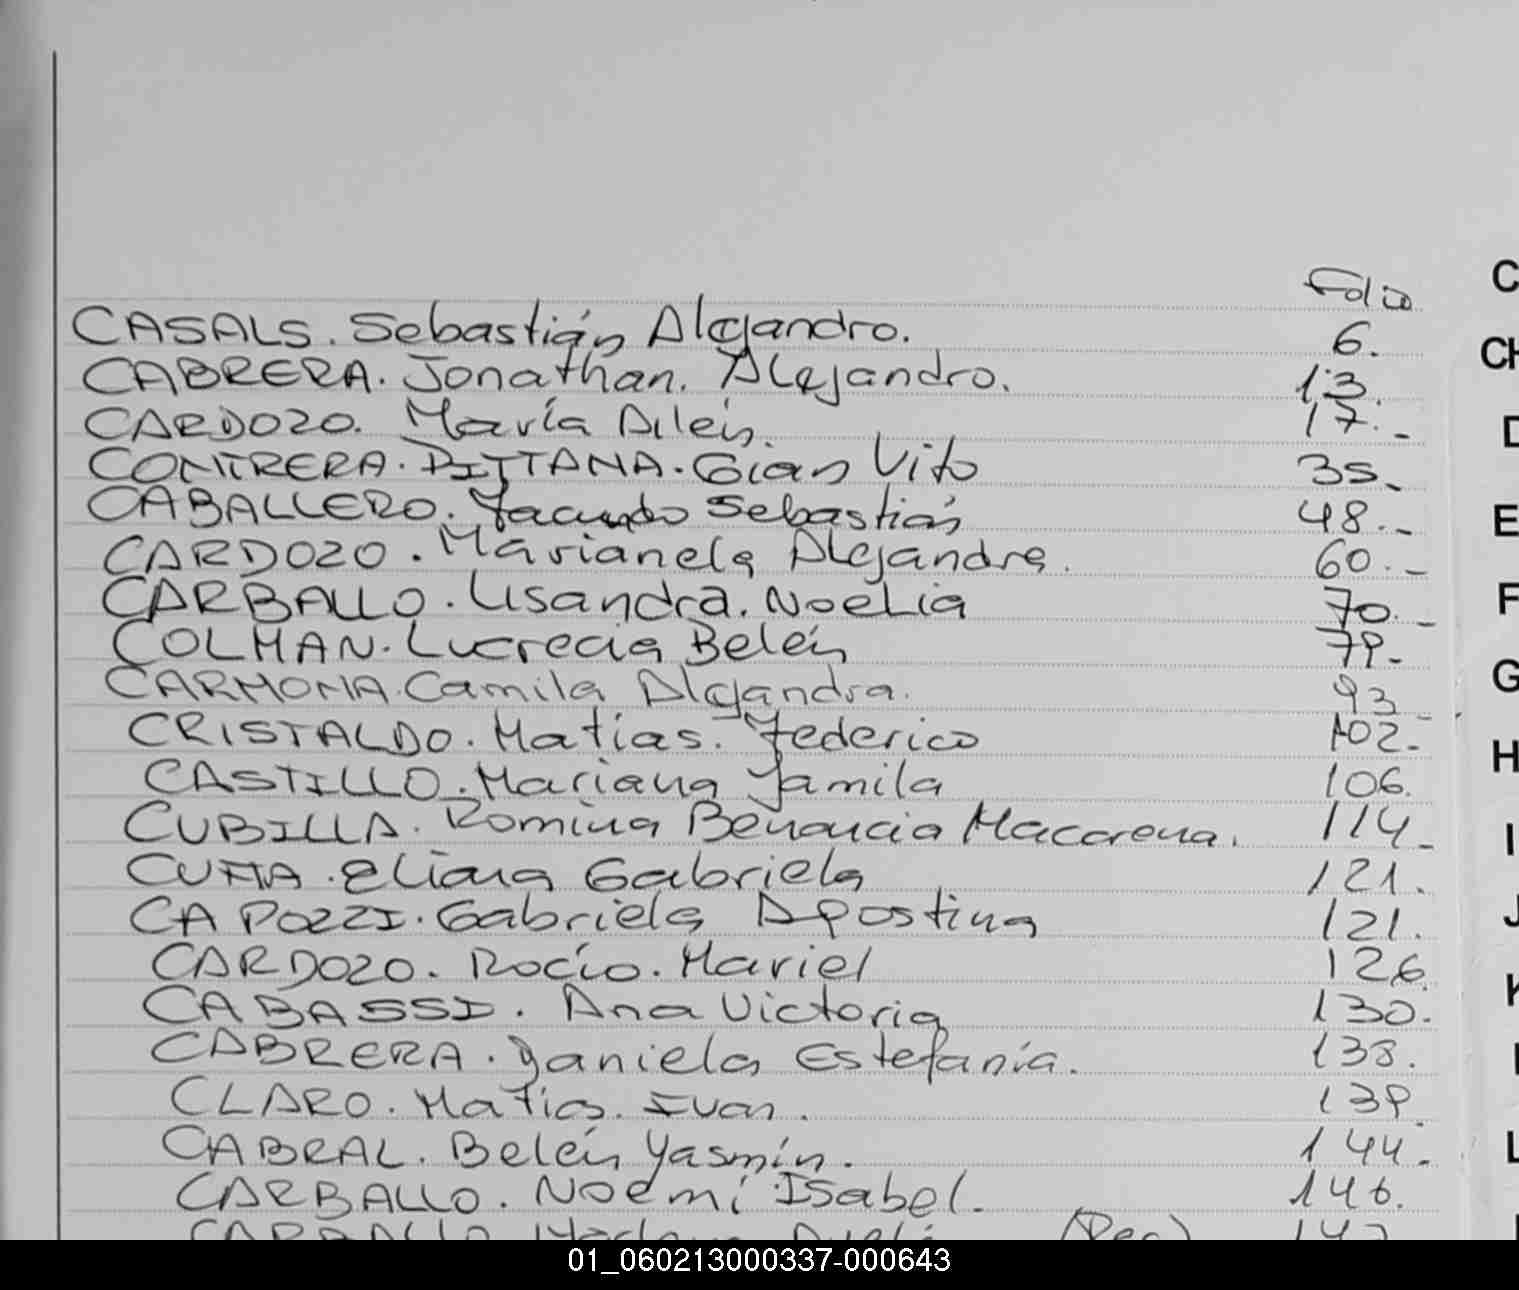 Folio
CASALS. Sebastián Alejandro. 6.
CABRERA. Jonathan. Alejandro. 13.
CARDOZO. María Ailén. 17.-
CONTRERA. PITTANA. Gian Vito 35.
CABALLERO. Facundo Sebastián 48.-
CARDOZO. Marianela Alejandra. 60.-
CARBALLO. Lisandra. Noelia 70.-
COLMAN. Lucrecia Belén 79.-
CARMONA. Camila Alejandra. 93
CRISTALDO. Matías. Federico 102.-
CASTILLO. Mariana Yamila 106.
CUBILLA. Romina Benancia Macarena. 114.-
Eliana Gabriela 121.
CAPOZZI. Gabriela Agostina 121.
CARDOZO. Rocío. Mariel 126.
CABASSI. Ana Victoria 130.
CABRERA. Daniela Estefanía. 138.
CLARO. Matías. Ivan. 139.
CABRAL. Belén Yasmín. 144.
CARBALLO. Noemí Isabel. 146.
C
CH
D
E
F
G
H
I
J
K
L
01_060213000337-000643